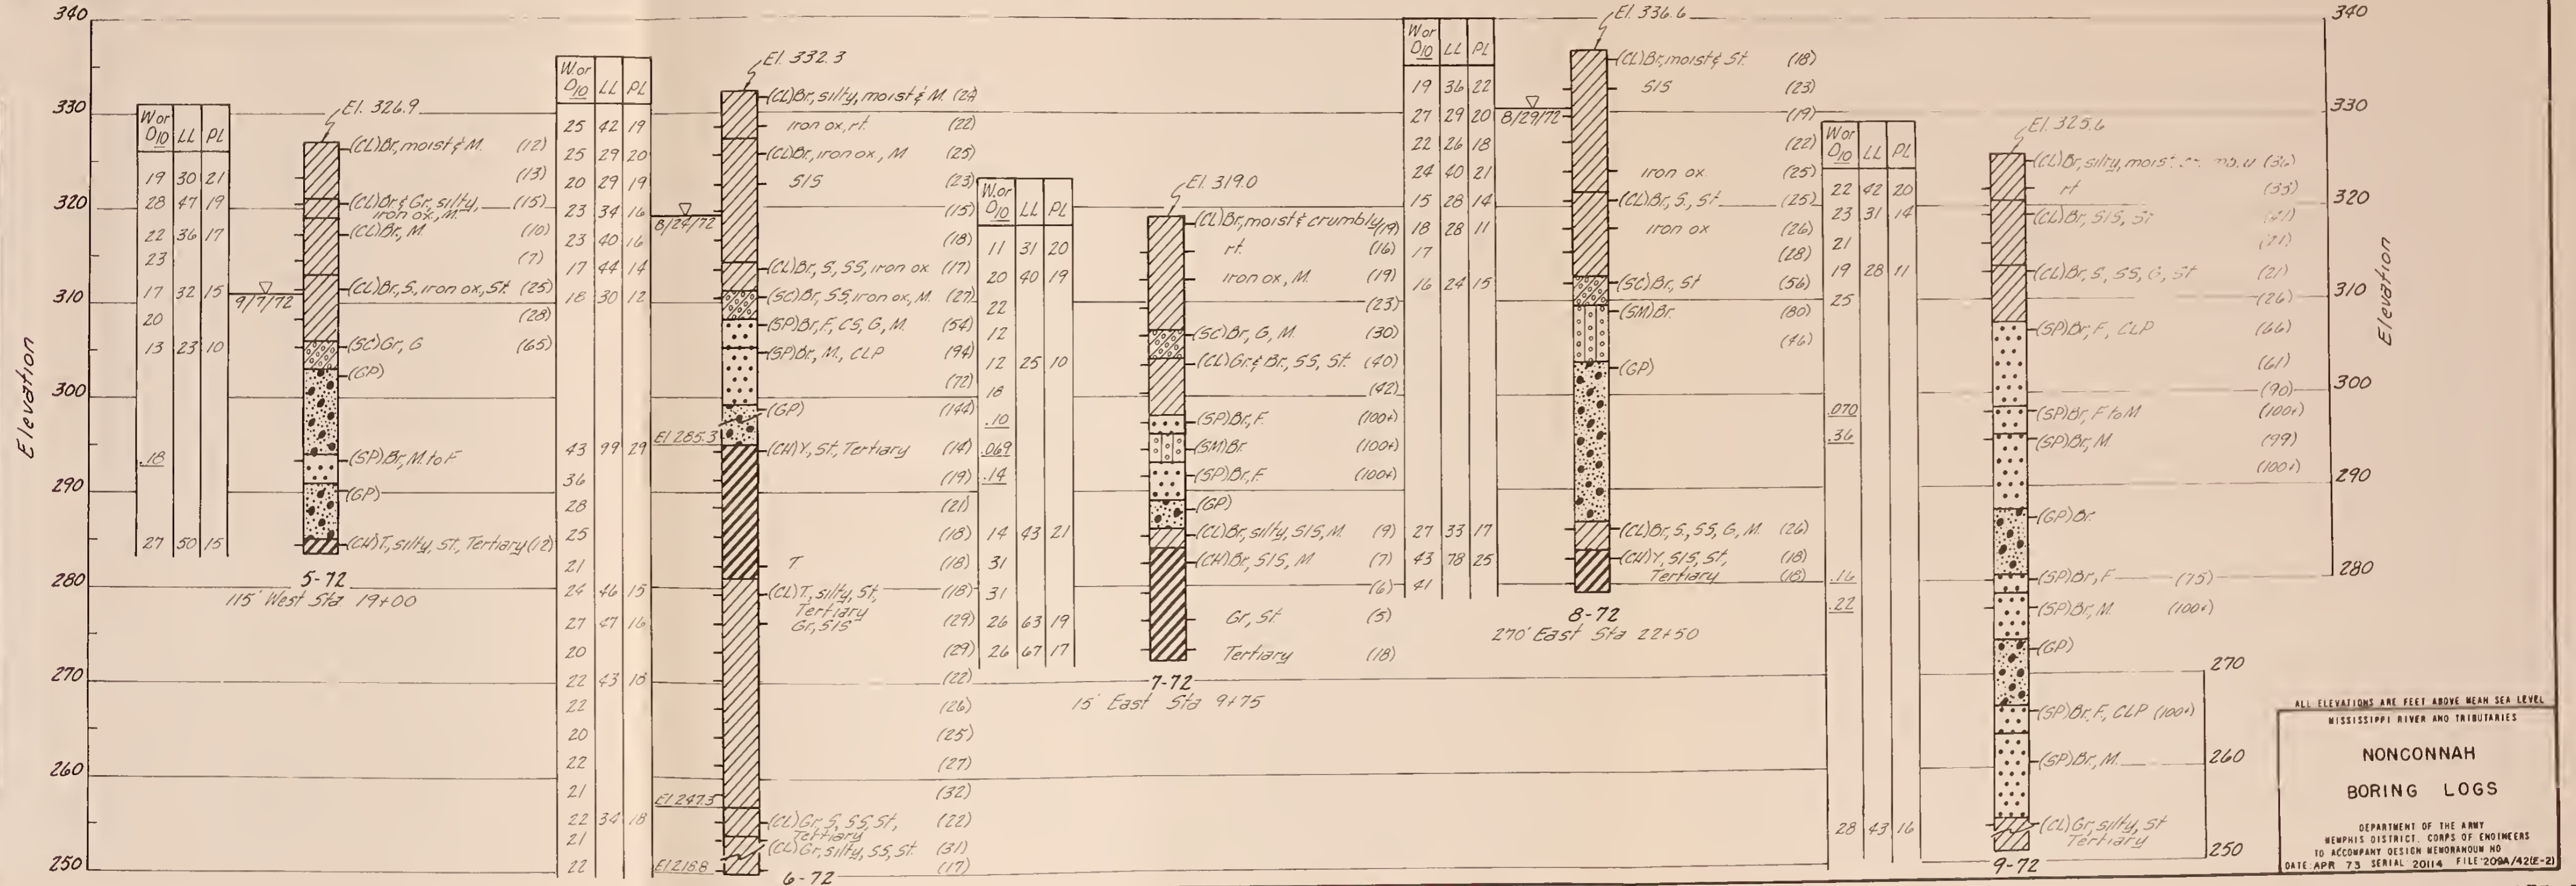 340
330
320
310
300
290
280
270
260
250
Elevation
W or D10 LL PL
19 30 21
28 47 19
22 36 17
23
17 32 15
20
13 23 10
.18
27 50 15
9/7/72
El. 326.9
(CL)Br, moist & M. (12)
(13)
(CL)Br & Gr, silty, (15)
iron ox, M.
(CL)Br, M. (10)
(7)
(CL)Br, S, iron ox, St. (25)
(28)
(SC)Gr, G (65)
(GP)
(SP)Br, M. to F
(GP)
(CH)T, silty, St, Tertiary (12)
5-72
115' West Sta 19+00
W or D10 LL PL
25 42 19
25 29 20
20 29 19
23 34 16
23 40 16
17 44 14
18 30 12
43 99 29
36
28
25
21
24 46 15
27 47 16
20
22 43 18
22
20
22
21
22 34 18
21
22
8/24/72
El 285.3
El 247.3
El 216.8
El. 332.3
(CL)Br, silty, moist & M.
iron ox, rt. (22)
(CL)Br, iron ox, M (25)
SIS (23)
(15)
(18)
(CL)Br, S, SS, iron ox (17)
(SC)Br, SS, iron ox, M. (27)
(SP)Br, F, CS, G, M. (54)
(SP)Br, M., CLP (94)
(72)
(GP) (144)
(CH)Y, St, Tertiary (14)
(19)
(21)
(18)
T (18)
(CL)T, silty, St, (18)
Tertiary
Gr, SIS (29)
(29)
(22)
(26)
(25)
(27)
(32)
(CL)Gr, S, SS, St, (22)
Tertiary
(CL)Gr, silty, SS, St. (31)
(17)
6-72
W or D10 LL PL
11 31 20
20 40 19
22
12
12 25 10
18
.10
.069
.14
14 43 21
31
31
26 63 19
26 67 17
El. 319.0
(CL)Br, moist & crumbly (19)
rt. (16)
iron ox, M. (19)
(23)
(SC)Br, G, M. (30)
(CL)Gr & Br, SS, St. (40)
(42)
(SP)Br, F. (100+)
(SM)Br. (100+)
(SP)Br, F. (100+)
(GP)
(CL)Br, silty, SIS, M. (9)
(CH)Br, SIS, M (7)
(6)
Gr, St (5)
Tertiary (18)
7-72
15' East Sta 9+75
W or D10 LL PL
19 36 22
27 29 20
22 26 18
24 40 21
15 28 14
18 28 11
17
16 24 15
27 33 17
43 78 25
41
8/29/72
El. 336.6
(CL)Br, moist & St. (18)
SIS (23)
(19)
(22)
iron ox. (25)
(CL)Br, S, St (25)
iron ox (26)
(28)
(SC)Br, St (56)
(SM)Br. (80)
(46)
(GP)
(CL)Br, S, SS, G, M. (26)
(CH)Y, SIS, St, (18)
Tertiary (18)
8-72
270' East Sta 22+50
W or D10 LL PL
22 42 20
23 31 14
21
19 28 11
25
.070
.36
.16
.22
28 43 16
El. 325.6
(CL)Br, silty, moist (36)
rt (33)
(CL)Br, SIS, St
(21)
(CL)Br, S, SS, G, St (21)
(26)
(SP)Br, F, CLP (66)
(61)
(90)
(SP)Br, F to M (100+)
(SP)Br, M. (99)
(100+)
(GP)Br.
(SP)Br, F (75)
(SP)Br, M. (100+)
(GP)
(SP)Br, F, CLP (100+)
(SP)Br, M.
(CL)Gr, silty, St
Tertiary
9-72
340
330
320
310
300
290
280
270
260
250
Elevation
ALL ELEVATIONS ARE FEET ABOVE MEAN SEA LEVEL
MISSISSIPPI RIVER AND TRIBUTARIES
NONCONNAH
BORING LOGS
DEPARTMENT OF THE ARMY
MEMPHIS DISTRICT, CORPS OF ENGINEERS
TO ACCOMPANY DESIGN MEMORANDUM NO
DATE: APR 73 SERIAL 20114 FILE 209A/42(E-2)